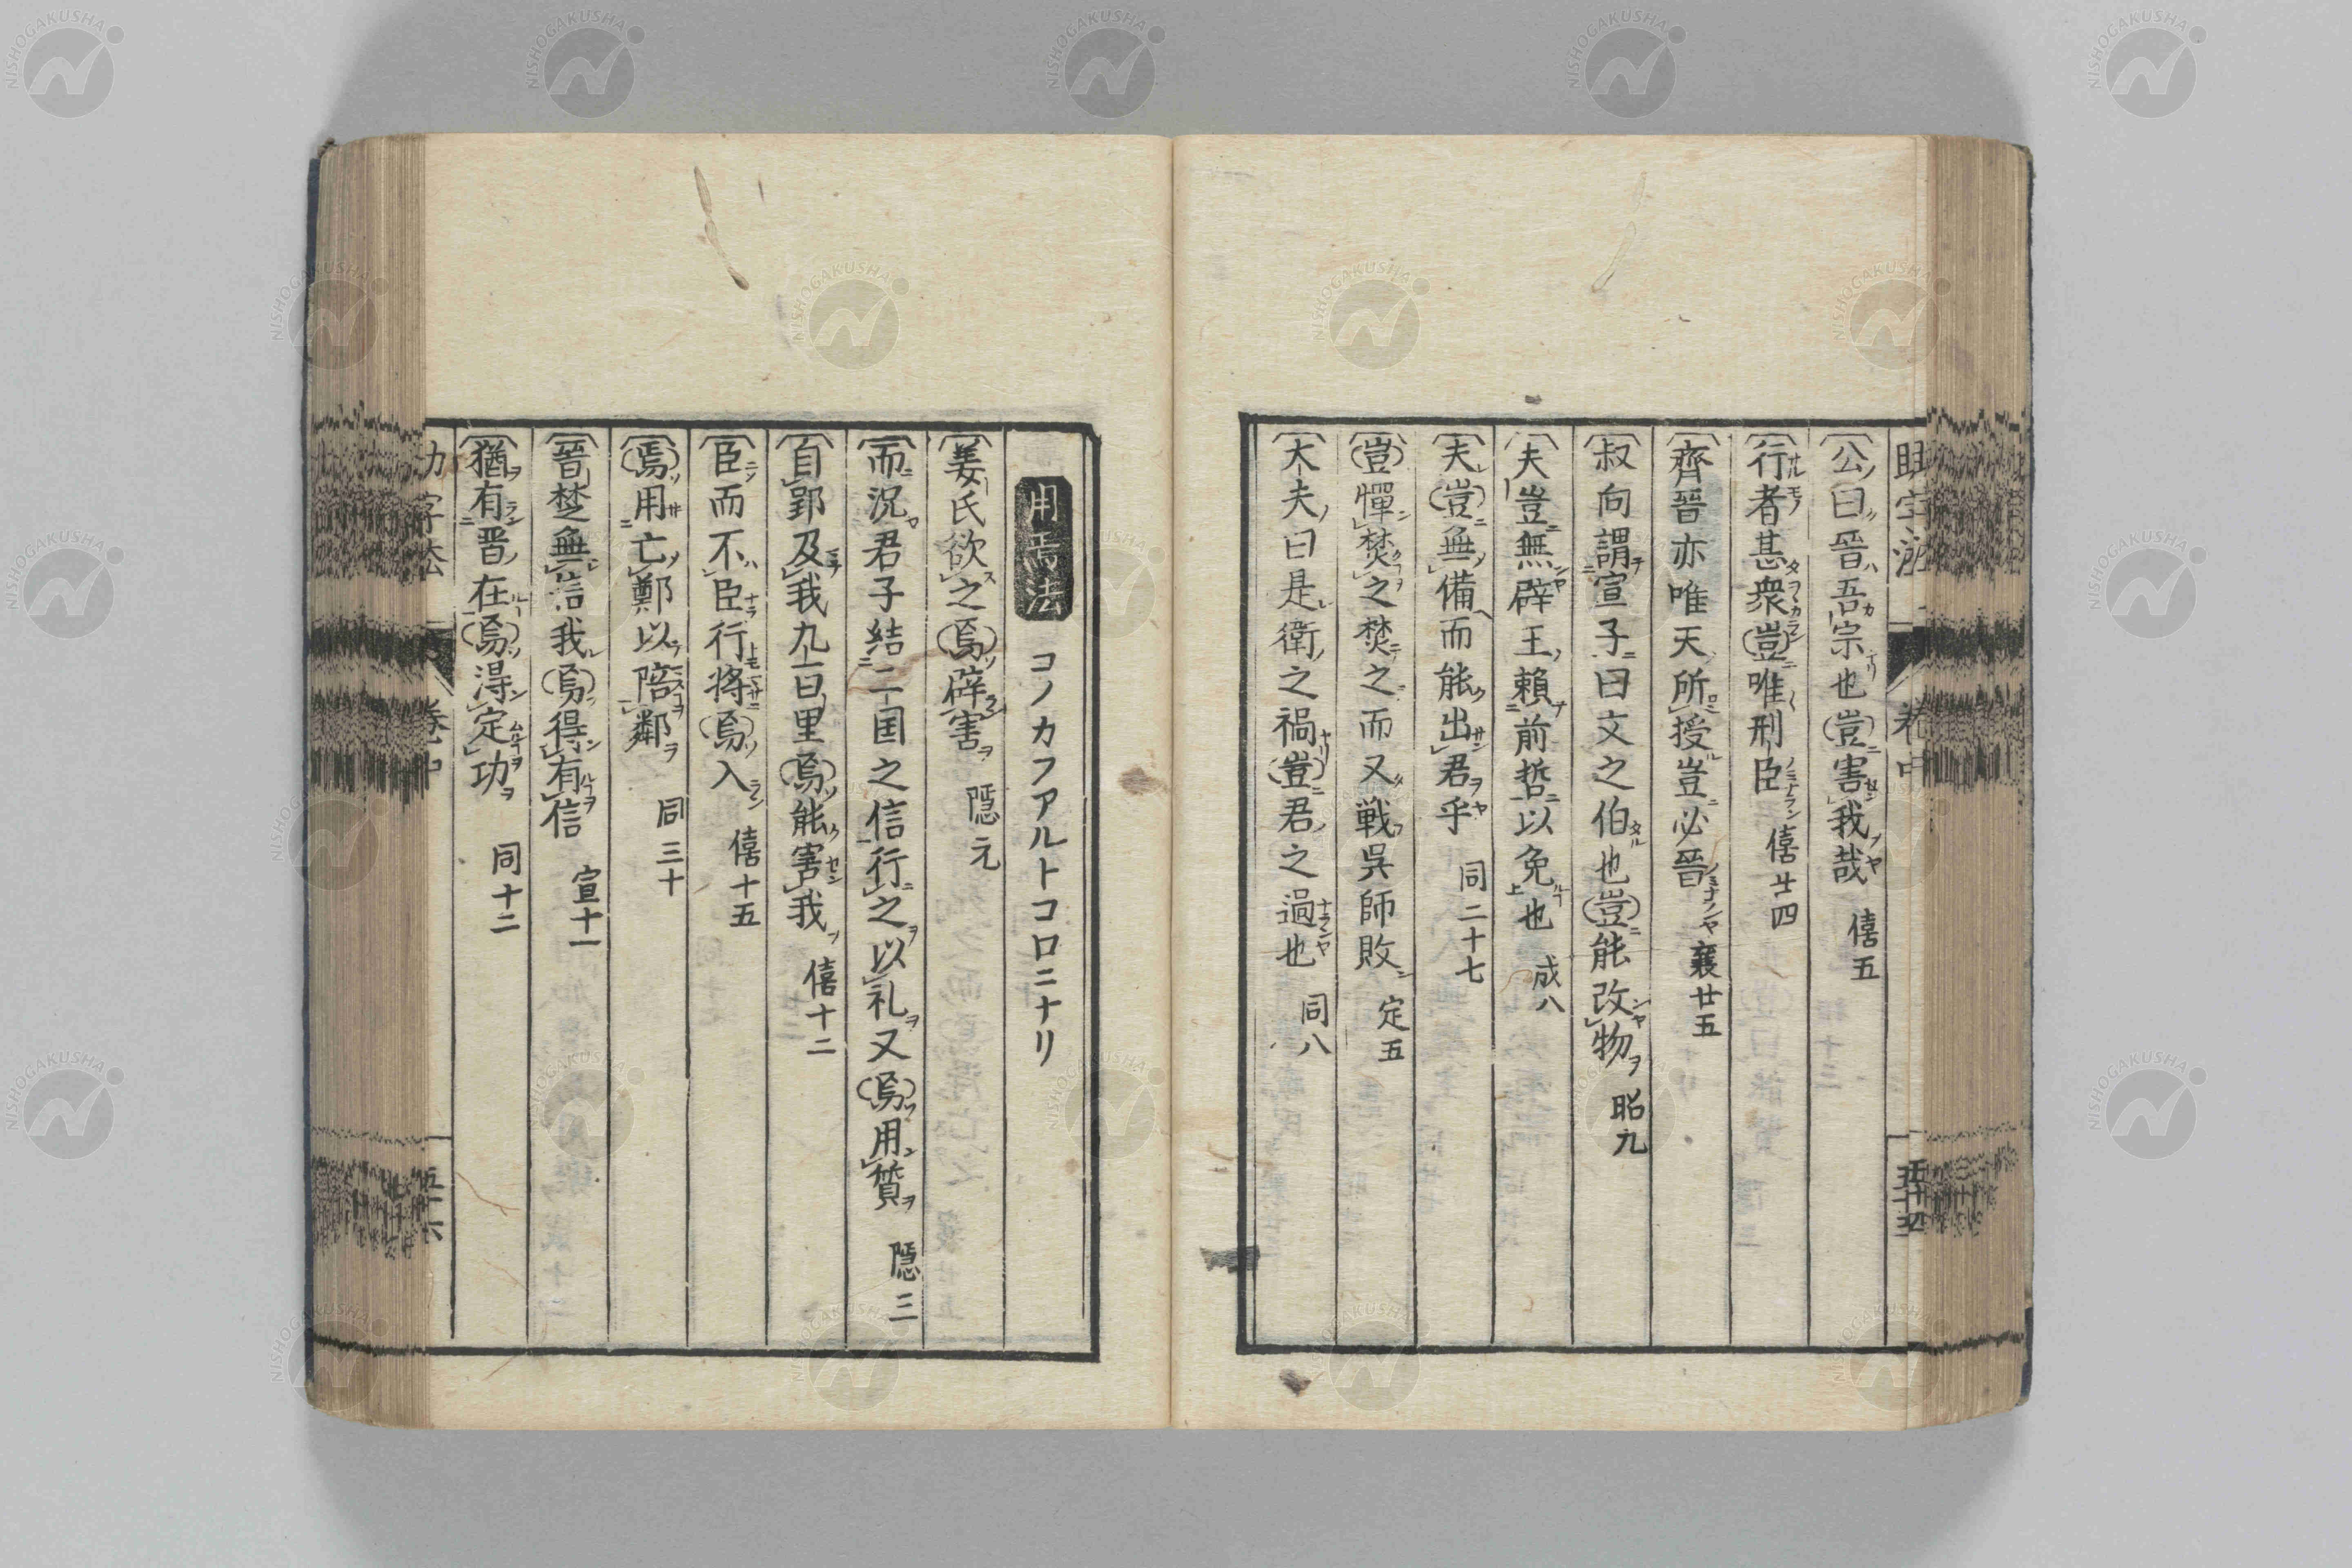 公曰晋吾宗也豈害我哉 僖五
行者甚衆豈唯刑臣 僖廿四
齊晋亦唯天所授豈必晋 襄廿五
叔向謂宣子曰文之伯也豈能改物 昭九
夫豈無辟王頼前哲以免也 成八
夫豈無備而能出君乎 同二十七
豈憚焚之焚之而又戦呉師敗 定五
大夫曰是衛之禍豈君之過也 同八
用焉法 コノカフアルトコロニナリ
姜氏欲之焉辟害 隠元
而況君子結二国之信行之以礼又焉用質 隠三
自郢及我九百里焉能害我 僖十二
臣而不臣行将焉入 僖十五
焉用亡鄭以陪鄰 同三十
晋楚無信我焉得有信 宣十一
猶有晋在焉得定功 同十二
卷中
五十六
NISHOGAKUSHA